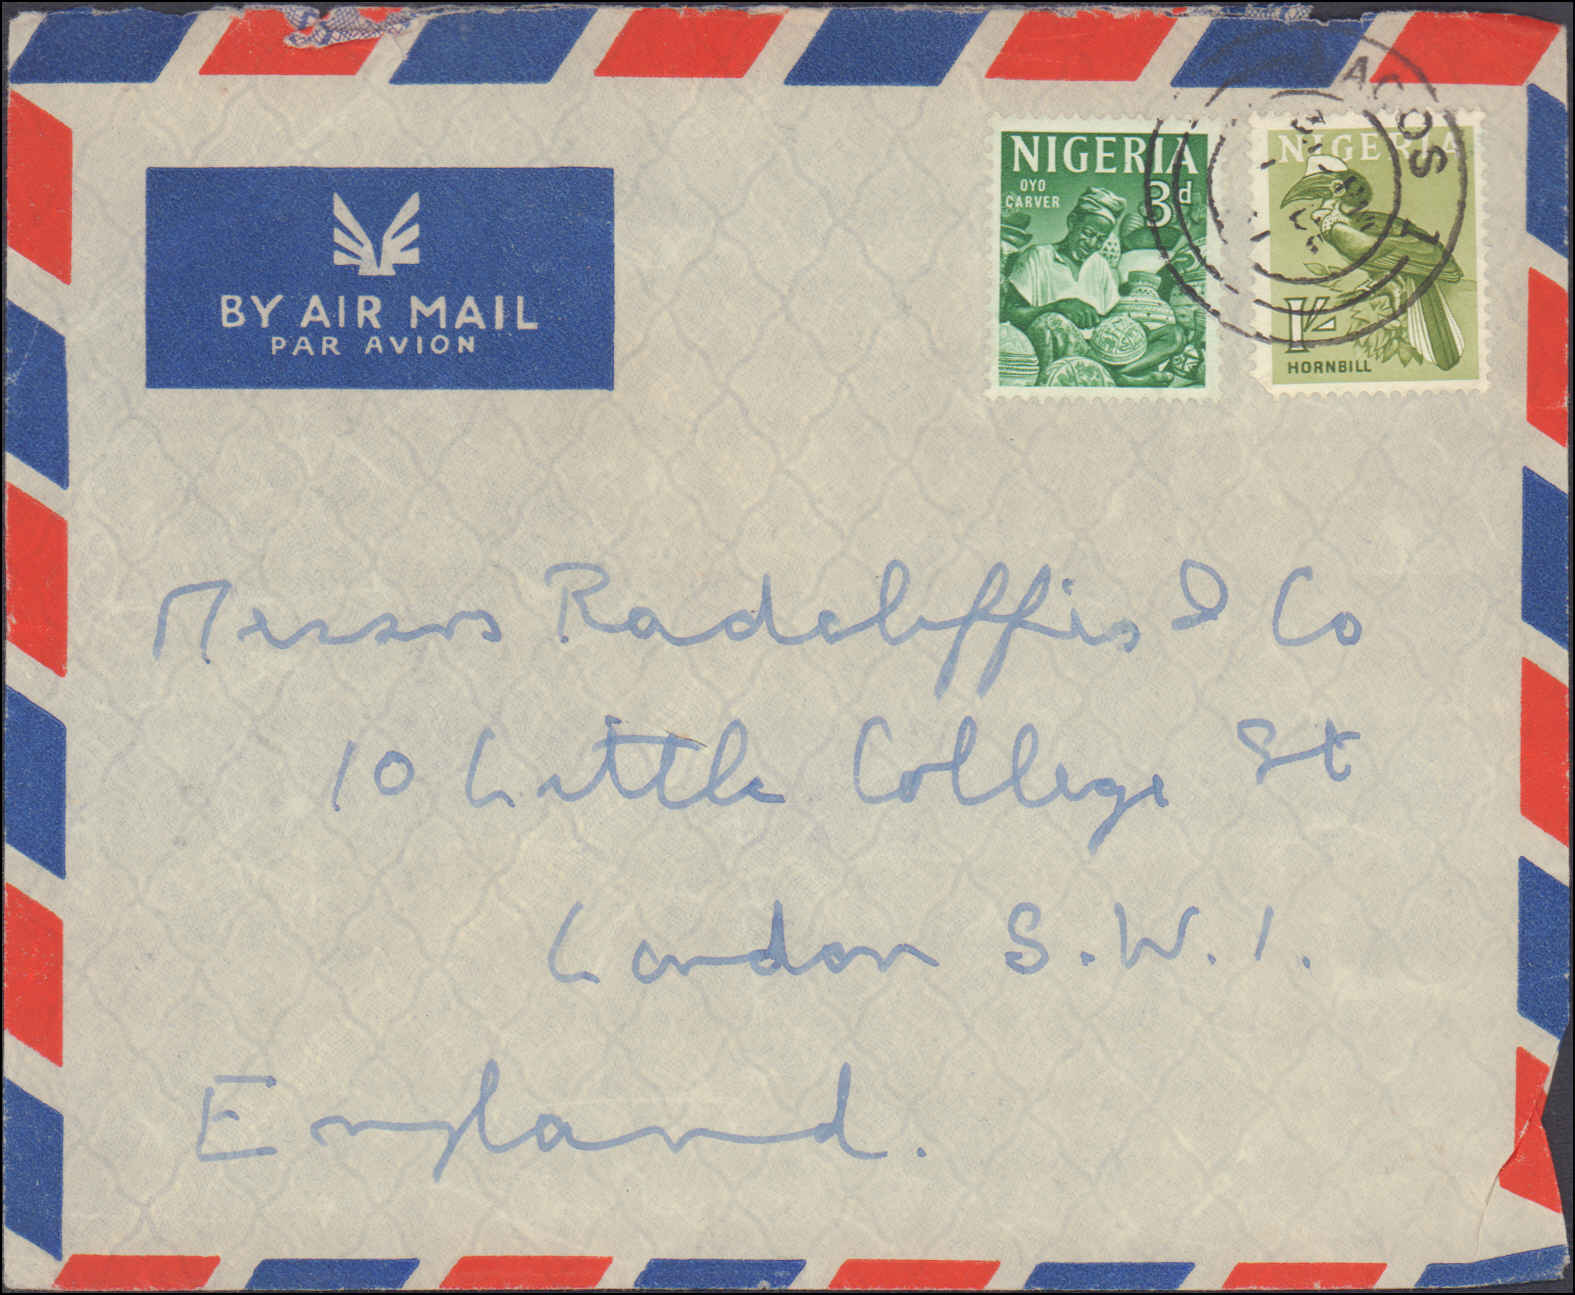 BY AIR MAIL
PAR AVION
NIGERIA
OYO
CARVER
3d
NIGERIA
1/-
HORNBILL
LAGOS
Messrs Radcliffes & Co
10 Little College St
London S.W.1.
England.